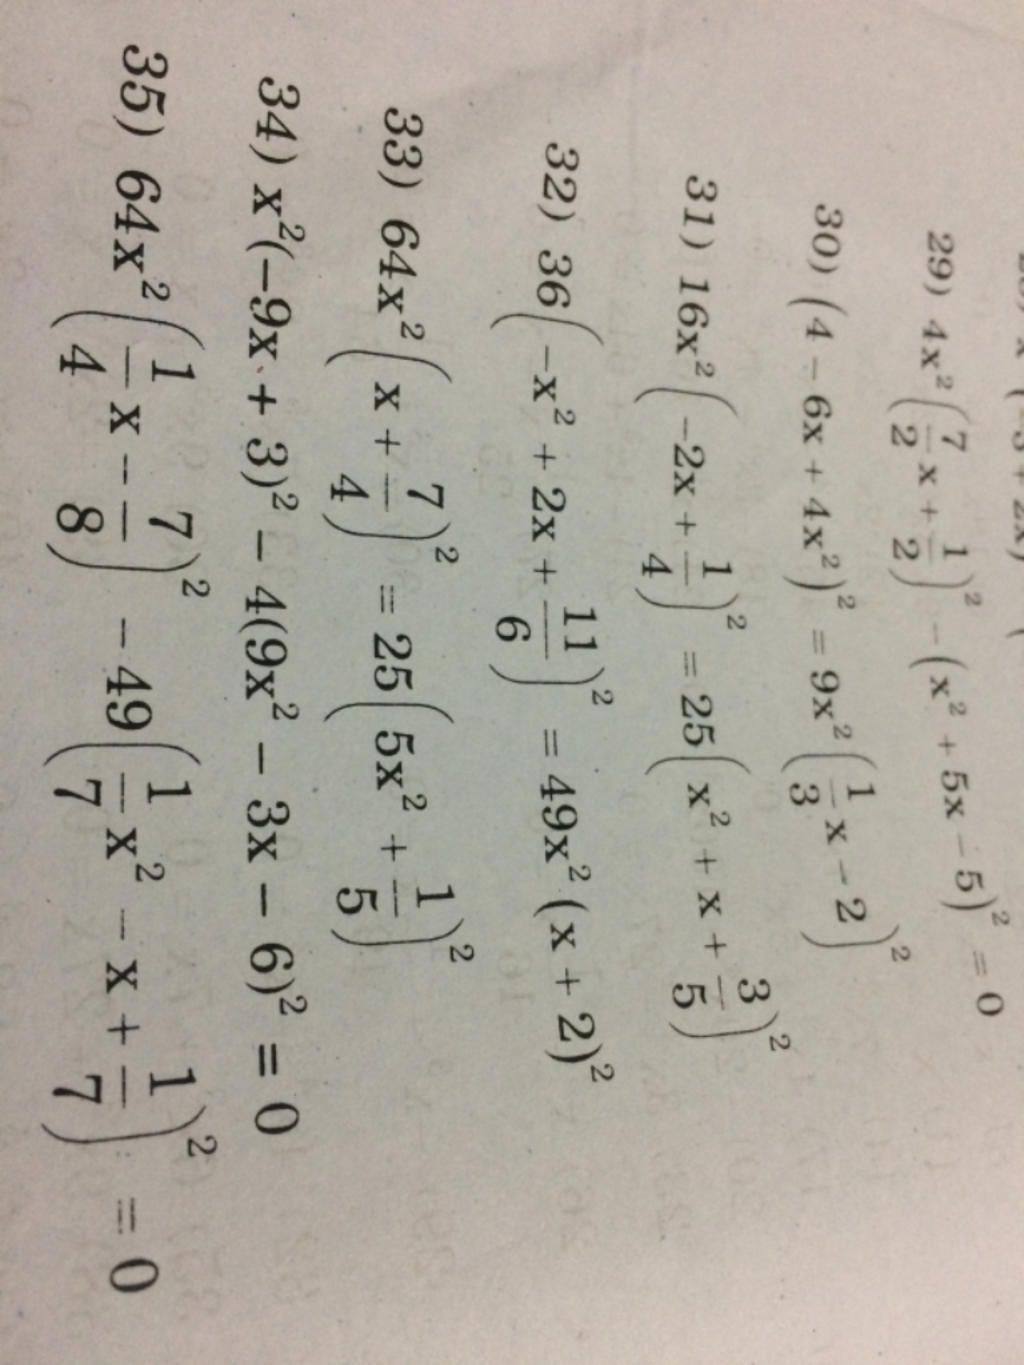 29) 4x²(7/2 x + 1/2)² - (x² + 5x - 5)² = 0
30) (4 - 6x + 4x²)² = 9x²(1/3 x - 2)²
31) 16x²(-2x + 1/4)² = 25(x² + x + 3/5)²
32) 36(-x² + 2x + 11/6)² = 49x²(x + 2)²
33) 64x²(x + 7/4)² = 25(5x² + 1/5)²
34) x²(-9x + 3)² - 4(9x² - 3x - 6)² = 0
35) 64x²(1/4 x - 7/8)² - 49(1/7 x² - x + 1/7)² = 0